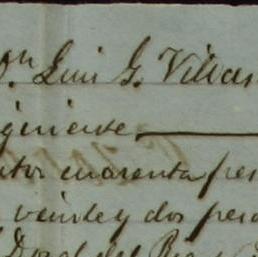 Dn. Luis G. Villas
geniente
tos cuarenta pes
veinte y dos peso
del Rio